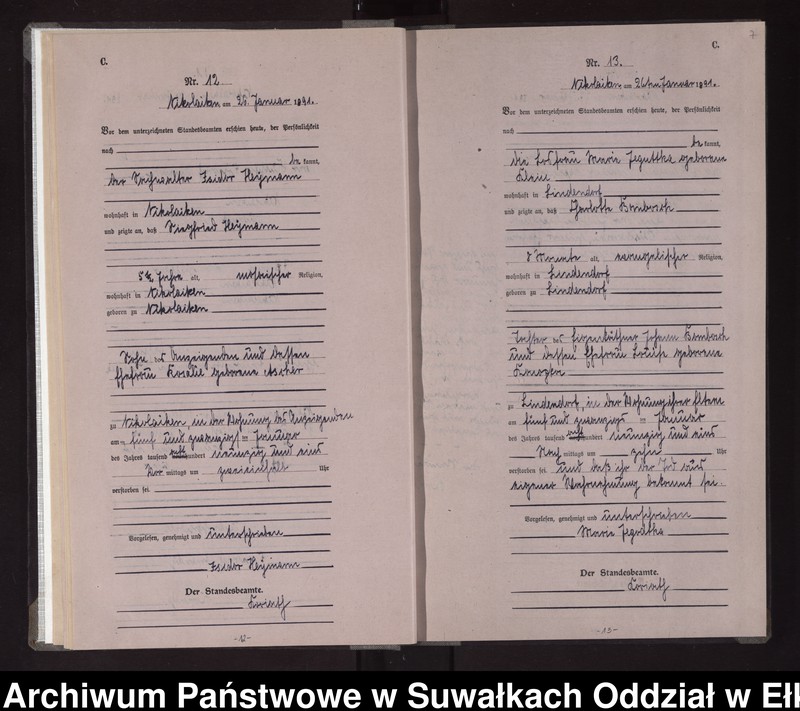 C.
Nr. 12
Nikolaiken am 26. Januar 1891.
Vor dem unterzeichneten Standesbeamten erschien heute, der Persönlichkeit
nach
be kannt,
der Isidor Heymann
wohnhaft in Nikolaiken
und zeigte an, daß Siegfried Heymann
5 1/2 Jahre alt, mosaischer Religion,
wohnhaft in Nikolaiken
geboren zu Nikolaiken
Sohn des Anzeigenden und dessen
Ehefrau Rosalie geborene Ascher
zu Nikolaiken, in der Wohnung des Anzeigenden
am fünf und zwanzigsten Januar
des Jahres tausend achthundert neunzig und eins
Vor mittags um Uhr
verstorben sei.
Vorgelesen, genehmigt und unterschrieben
Isidor Heymann
Der Standesbeamte.
-12-
7
C.
Nr. 13.
Nikolaiken am 26ten Januar 1891.
Vor dem unterzeichneten Standesbeamten erschien heute, der Persönlichkeit
nach
be kannt,
die Losfrau Marie geborene
Klein
wohnhaft in Lindendorf
und zeigte an, daß Charlotte
Monate alt, evangelischer Religion,
wohnhaft in Lindendorf
geboren zu Lindendorf
Tochter des Eigenkäthner Johann
und dessen Ehefrau Louise geborene
zu Lindendorf, in der Wohnung ihrer Eltern
am fünf und zwanzigsten Januar
des Jahres tausend achthundert neunzig und eins
Nach mittags um zehn Uhr
verstorben sei und daß ihr der Tod aus
eigener Wahrnehmung bekannt sei.
Vorgelesen, genehmigt und unterschrieben
Marie
Der Standesbeamte.
-13-
Archiwum Państwowe w Suwałkach Oddział w Ełk